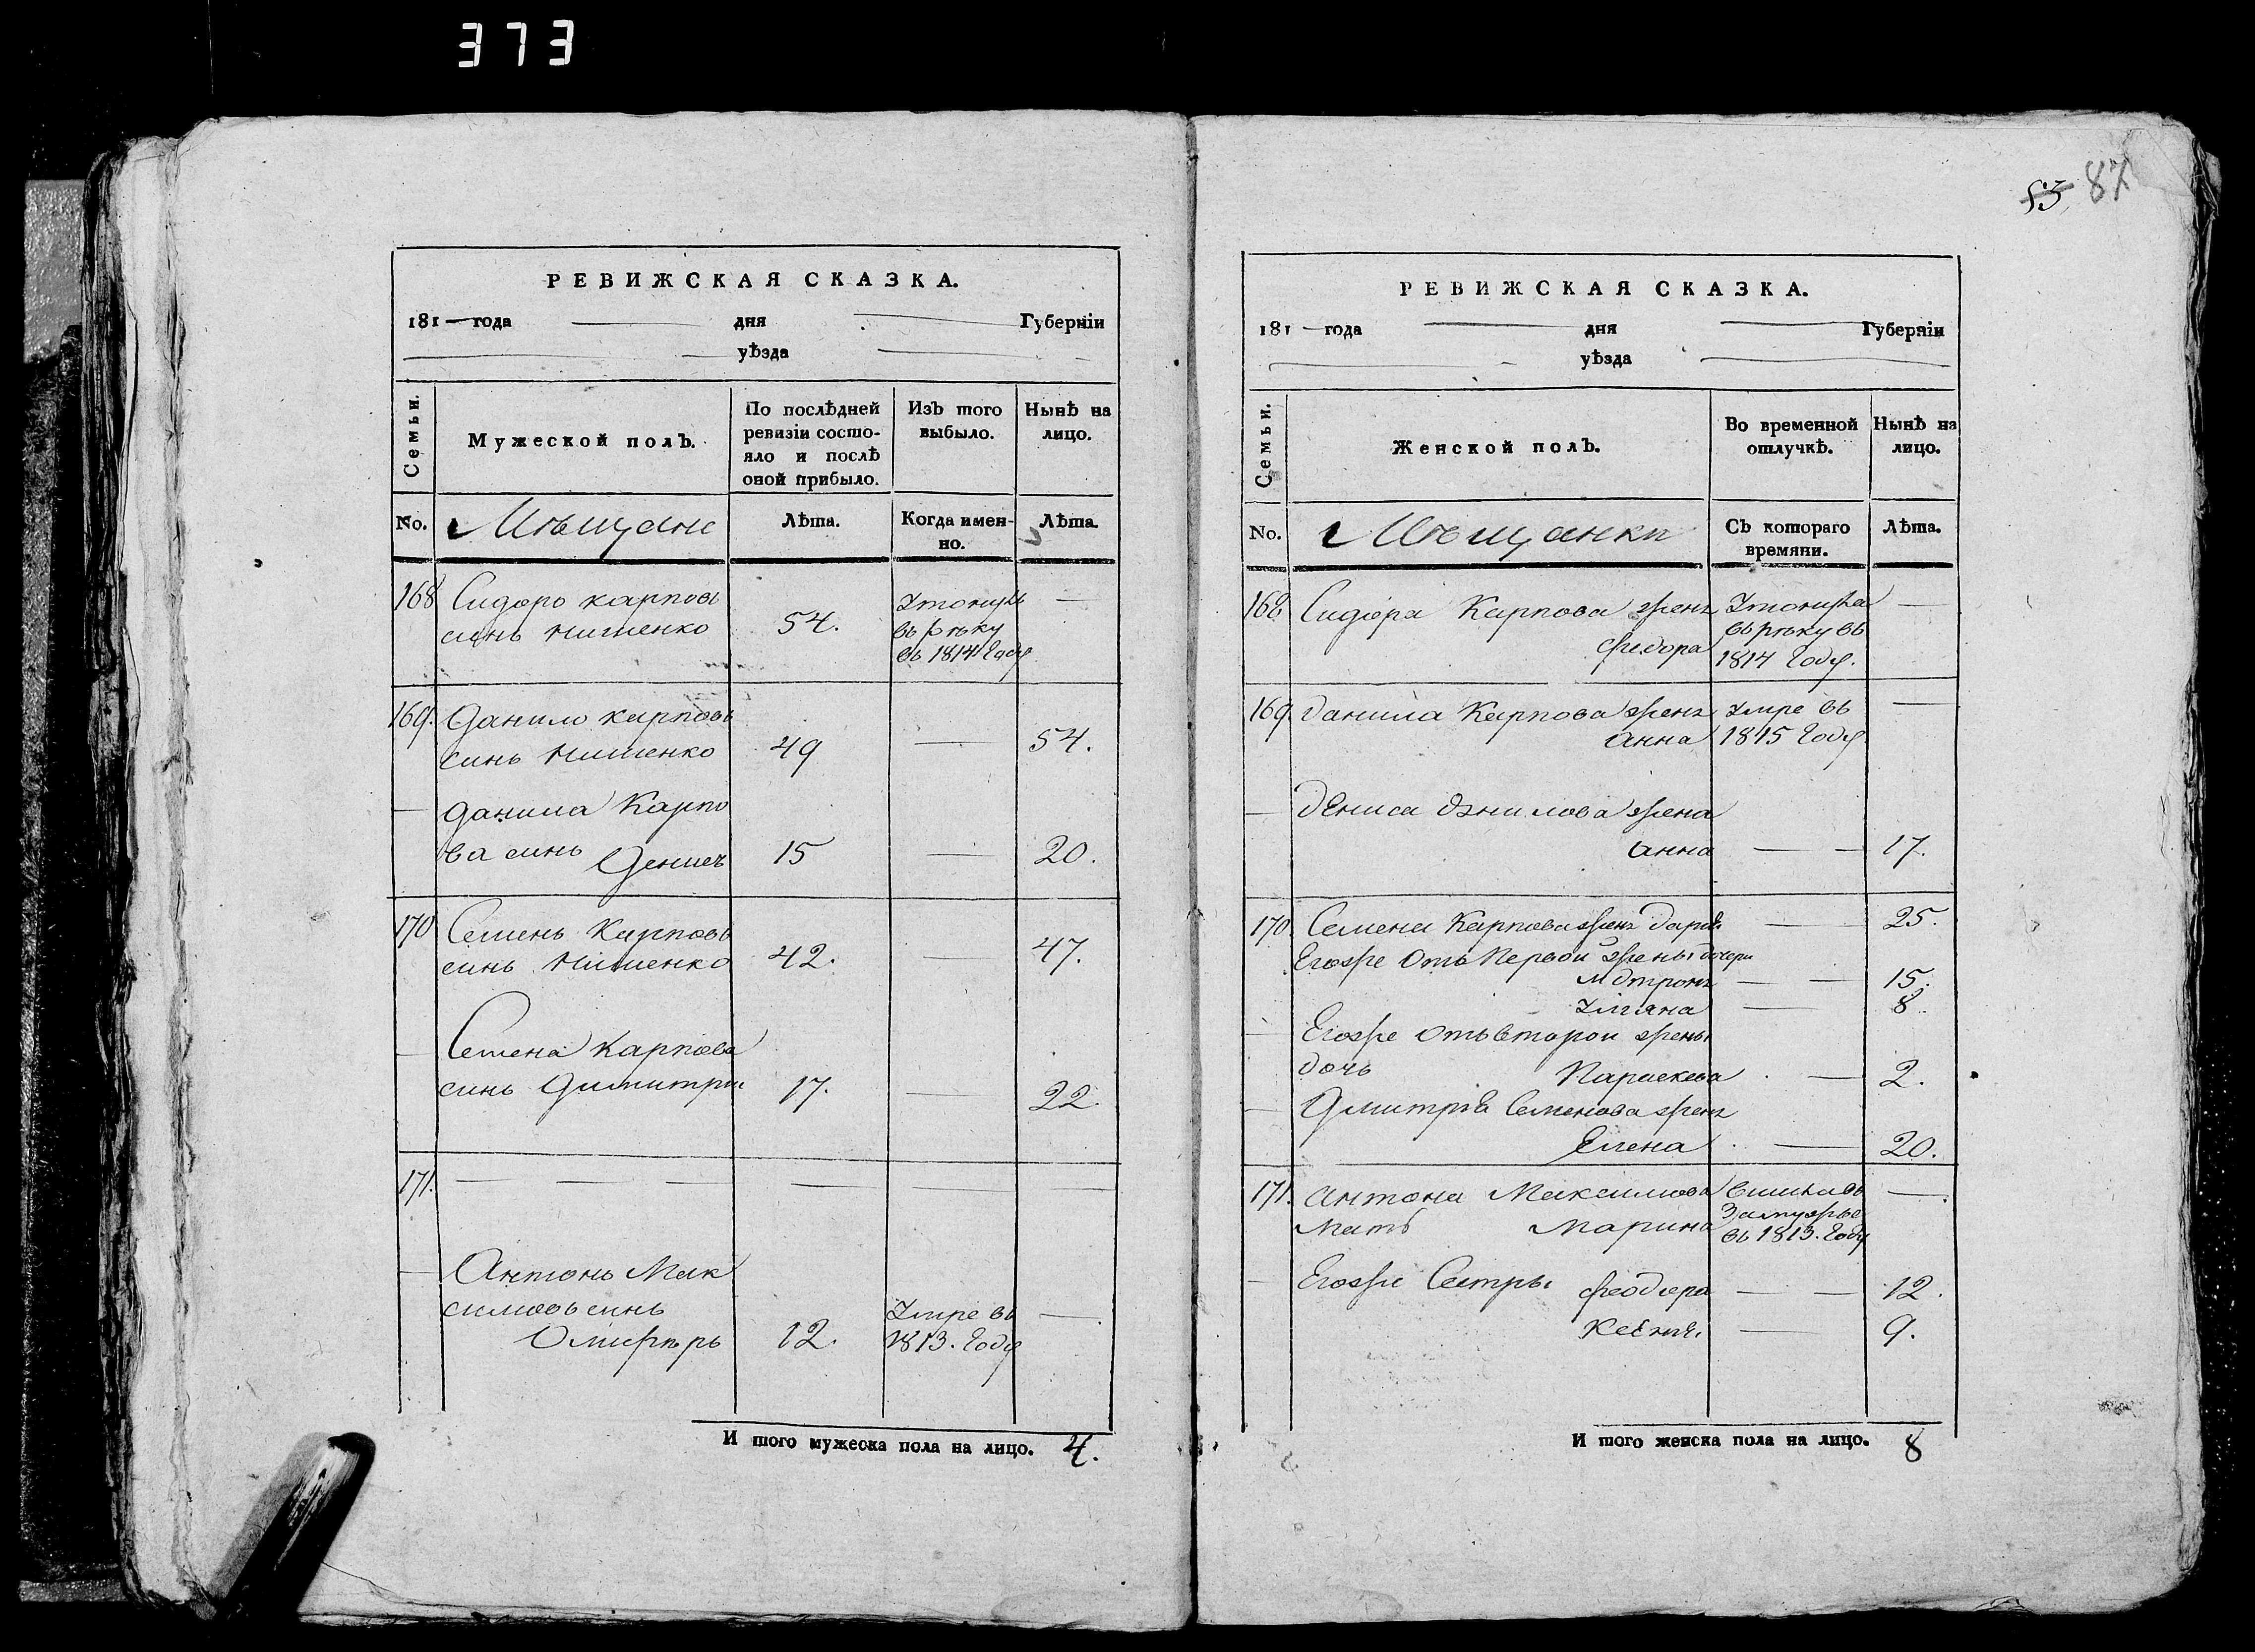 373
83, 87
РЕВИЖСКАЯ СКАЗКА.
181 — года дня Губерніи
уѣзда
Семьи.
Мужеской полъ.
По послѣдней ревизіи состо-
яло и послѣ оной прибыло.
Изъ того выбыло.
Нынѣ на лицо.
No.
Мѣщане
Лѣта.
Когда имен-
но.
Лѣта.
168 Сидоръ карповъ Утонулъ —
синъ 54. въ рѣку
въ 1814 Году
169. Данило карповъ
синъ 49 — 54.
— Данила Карпо
ва синъ Денисъ 15 — 20.
170 Семенъ Карповъ
синъ 42. — 47.
— Семена Карпова
синъ Димитри 17. — 22.
171. — — — — — —
— Антонъ Мак
симовъ синъ Умре въ —
12. 1813. Году
И того мужеска пола на лицо. 4.
РЕВИЖСКАЯ СКАЗКА.
181 — года дня Губерніи
уѣзда
Семьи.
Женской полъ.
Во временной отлучкѣ.
Нынѣ на лицо.
No.
Мѣщанки
Съ котораго
времяни.
Лѣта.
168 Сидора Карпова жена Утонула —
Федора въ рѣку въ
1814 Году.
169 Данила Карпова жена Умре въ —
анна 1815 Году
— Дениса Данилова жена
анна — — 17.
170. Семена Карпова жена Дарія — 25.
Егожъ отъ Первой жены дочери
Матрона — — 15.
Уліяна — 8.
— Егожъ отъ второй жены
дочь Параскева — 2.
— Дмитрія Семенова жена
Елена — 20.
171. Антона Максимова вишла въ —
Мать Марина Замужъе
въ 1813. Году
— Егожъ Сестры Феодора — — 12.
Ксенія — 9.
И того женска пола на лицо. 8